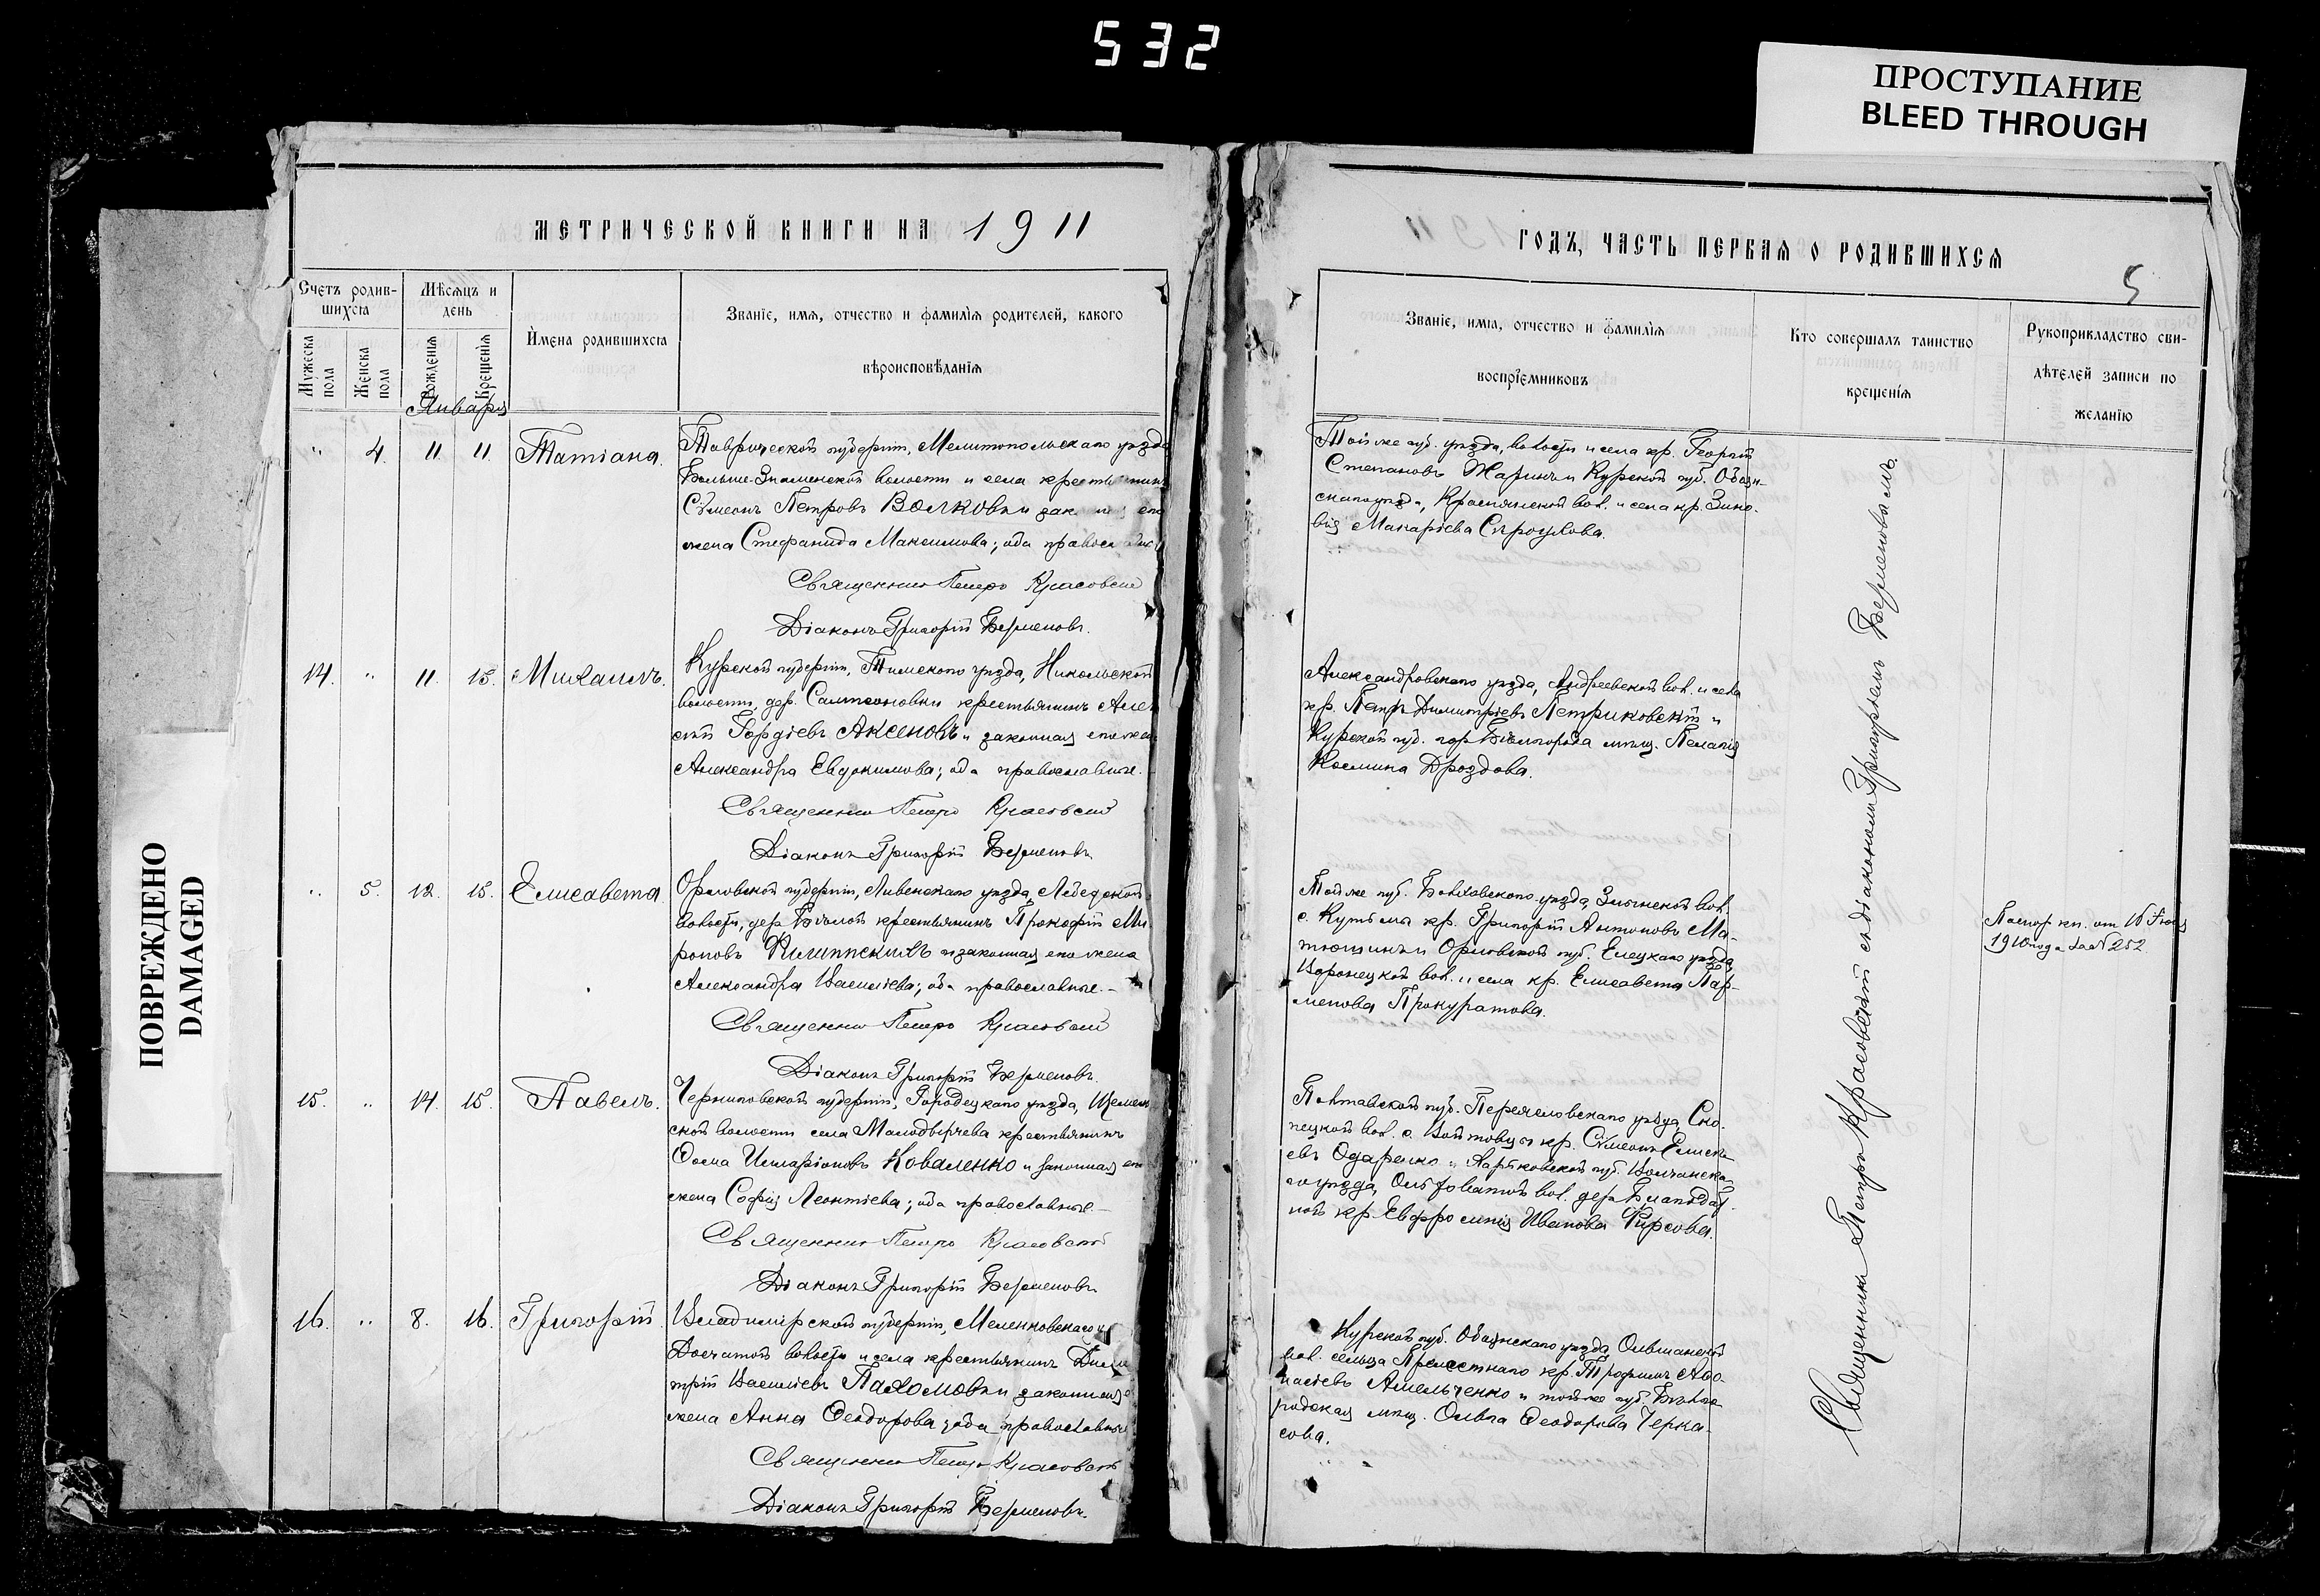 532
ПРОСТУПАНИЕ
BLEED THROUGH
ПОВРЕЖДЕНО
DAMAGED
МЕТРИЧЕСКОЙ КНИГИ НА 1911
Счетъ родив-
шихся
Мѣсяцъ и
день
Имена родившихся
Званіе, имя, отчество и фамилія родителей, какого
вѣроисповѣданія
Мужеска
пола
Женска
пола
Рожденія
Крещенія
Января
" 4. 11. 11. Татіана.
Таврической губерніи, Мелитопольскаго уѣзда
Больше-Знаменской волости и села крестьянинъ
Сѵмеонъ Петровъ Волковъ и
жена Стефанида Максимова; оба
Священникъ Петръ Красовскій
Діаконъ Григорій
14. " 11. 15. Михаилъ.
Курской губерніи, Тимскаго уѣзда, Никольской
волости, дер. Сампсоновки крестьянинъ Алек
сѣй Гордіевъ Аксеновъ и законная его жена
Александра Евдокимова; оба православные.
Священникъ Петръ Красовскій
Діаконъ Григорій
" 5. 12. 15. Елисавета.
Орловской губерніи, Ливенскаго уѣзда,
волости, дер. крестьянинъ Прокофій Ми
роновъ и законная его жена
Александра Васильева; оба православные.
Священникъ Петръ Красовскій
Діаконъ Григорій
15. " 14. 15. Павелъ.
Черниговской губерніи, Городецкаго уѣзда,
ской волости села крестьянинъ
Ѳома Иларіоновъ Коваленко и законная его
жена Софія Леонтіева; оба православные
Священникъ Петръ Красовскій
Діаконъ Григорій
16. " 8. 16. Григорій.
Владимірской губерніи, Меленковскаго у
Досчатой волости и села крестьянинъ Дими
трій Васильевъ Пахомовъ и законная
жена Анна Ѳеодорова; оба православные
Священникъ Петръ Красовскій
Діаконъ Григорій
ГОДЪ, ЧАСТЬ ПЕРВАЯ О РОДИВШИХСЯ
5
Званіе, имя, отчество и фамилія
воспріемниковъ
Кто совершалъ таинство
крещенія
Рукоприкладство сви-
дѣтелей записи по
желанію
Той же губ. уѣзда, волости и села кр. Георгій
Степановъ и Курской губ. Обоян-
скаго уѣзда, вол. и села кр. Зино-
вія Макаріева
Александровскаго уѣзда, Андреевской вол. и села
кр. Петръ Димитріевъ Петриковскій и
Курской губ. гор. Бѣлгорода мѣщ. Пелагія
Космина Дроздова.
Той же губ. Болховскаго уѣзда, Злынской вол.
с. Кутьмы кр. Григорій Антоновъ Ма-
тюшинъ и Орловской губ. Елецкаго уѣзда,
Воронецкой вол. и села кр. Елисавета Пар-
менова Прокуратова.
Паспор. кн. от
1910 года за № 252
Полтавской губ. Переяславскаго уѣзда,
вол. с. Войтовцы кр. Сѵмеонъ Елисе-
евъ Одаренко и Харьковской губ. Волчанска-
го уѣзда, вол. дер. Благодат-
ной кр. Евфросинія Иванова Фирсова.
Курской губ. Обоянскаго уѣзда Ольшанской
вол. сельца кр. Трофимъ Аѳа-
насіевъ Амельченко и той же губ. Бѣлго-
родская мѣщ. Ольга Ѳеодорова Черка-
сова.
Священникъ Петръ Красовскій съ діакономъ Григоріемъ